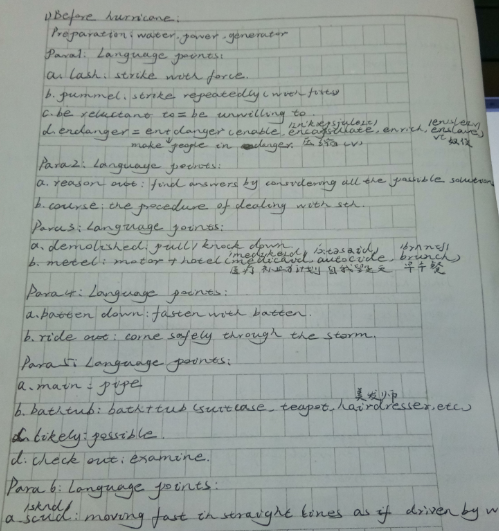 1) Before hurricane:
Preparation: water, power, generator
Para1: Language points:
a. lash: strike with force.
b. pummel: strike repeatedly (with fists
c. be reluctant to = be unwilling to
d. endanger = en+danger (enable, encapsulate, enrich, enslave
make people in danger
Para2: Language points:
a. reason out: find answers by considering all the possible solution
b. course: the procedure of dealing with sth.
Para3: Language points:
a. demolished: pull/knock down
b. motel: motor + hotel (medicaid, autocide, brunch)
早午餐
Para4: Language points:
a. batten down: fasten with batten.
b. ride out: come safely through the storm.
Para5: Language points:
a. main = pipe
美发师
b. bathtub: bath+tub (suitcase, teapot, hairdresser, etc)
c. likely: possible
d. check out: examine.
Para6: Language points:
a. scud: moving fast in straight lines as if driven by w